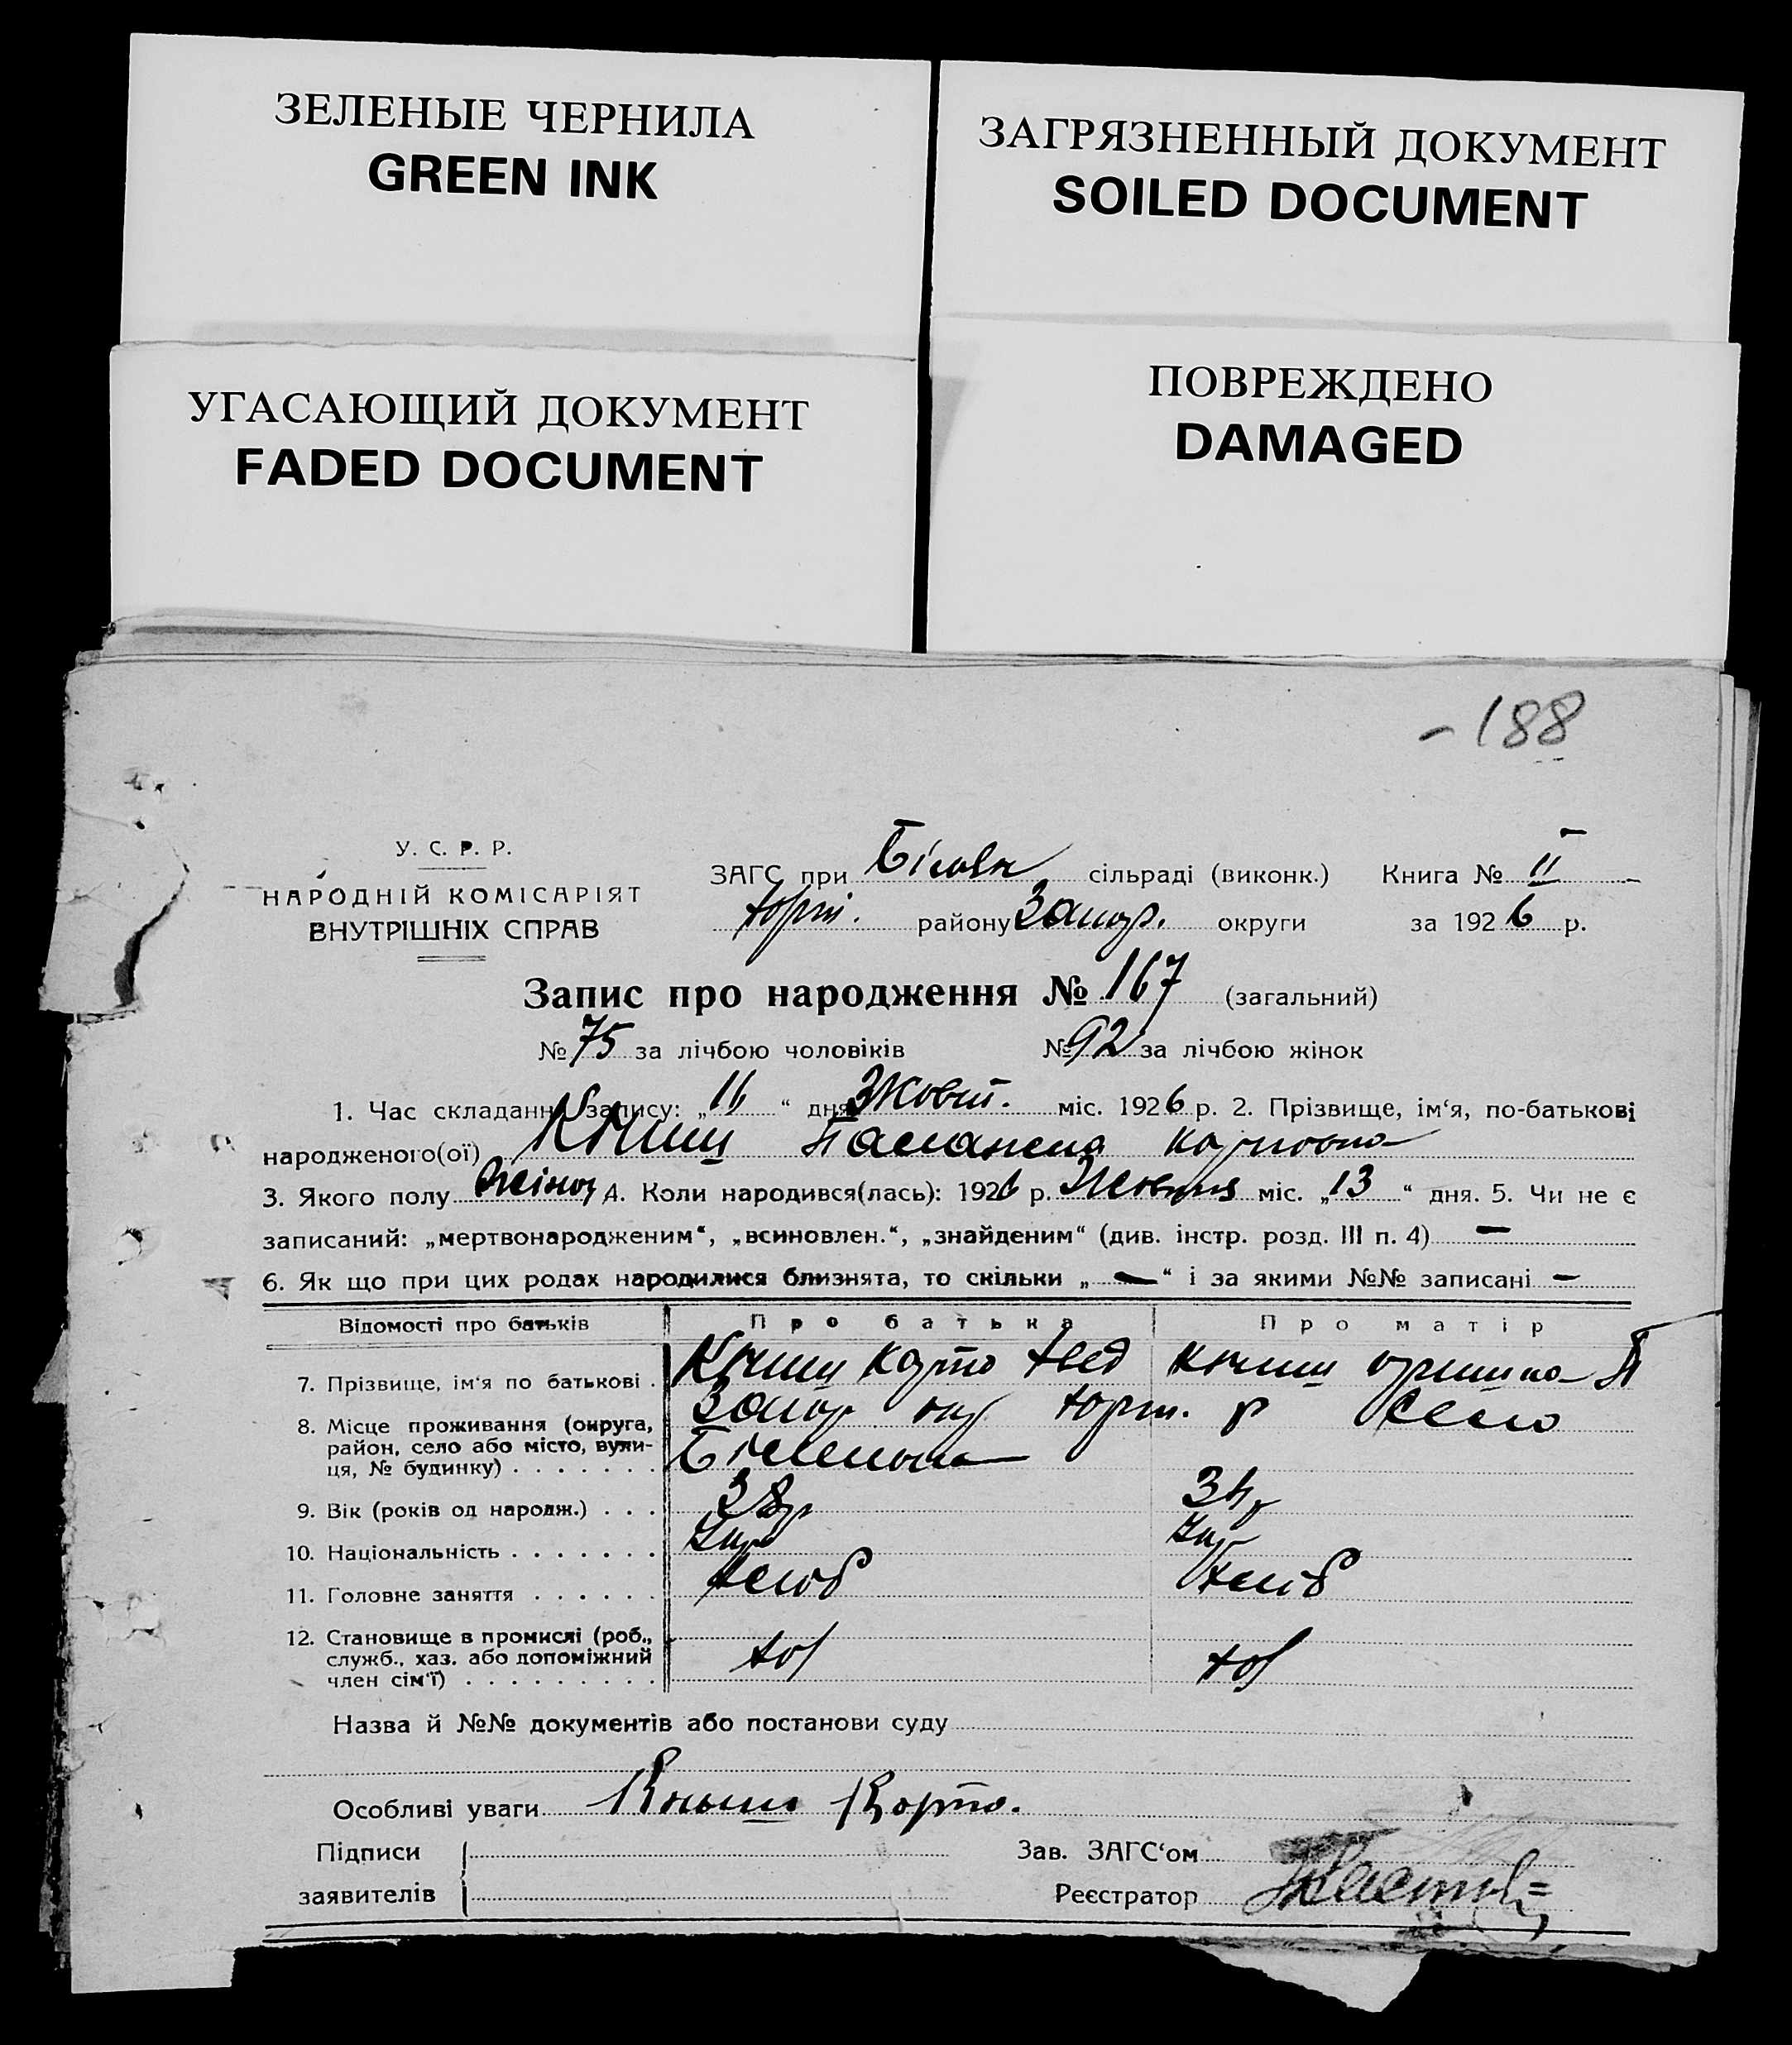 ЗЕЛЕНЫЕ ЧЕРНИЛА
GREEN INK
ЗАГРЯЗНЕННЫЙ ДОКУМЕНТ
SOILED DOCUMENT
УГАСАЮЩИЙ ДОКУМЕНТ
FADED DOCUMENT
ПОВРЕЖДЕНО
DAMAGED
- 188
У. С. Р. Р.
НАРОДНІЙ КОМІСАРІЯТ
ВНУТРІШНІХ СПРАВ
ЗАГС при сільраді (виконк.) Книга № II
району Запор. округи за 1926 р.
Запис про народження № 167 (загальний)
№ 75 за лічбою чоловіків № 92 за лічбою жінок
1. Час складання запису: „ “ дня Жовт. міс. 1926 р. 2. Прізвище, ім‘я, по-батькові
народженого(ої)
3. Якого полу Жіноч 4. Коли народився(лась): 1926 р. Жовтня міс. „13“ дня. 5. Чи не є
записаний: „мертвонародженим“, „всиновлен.“, „знайденим“ (див. інстр. розд. III п. 4) —
6. Як що при цих родах народилися близнята, то скільки „—“ і за якими №№ записані —
Відомості про батьків Про батька Про матір
7. Прізвище, ім‘я по батькові .
8. Місце проживання (округа, Запор окр р село
район, село або місто, вули-
ця, № будинку) . . . . . . .
9. Вік (років од народж.) . . . 38 р
10. Національність . . . . . . . Укр Укр
11. Головне заняття . . . . . . хліб хліб
12. Становище в промислі (роб.,
служб., хаз. або допоміжний
член сім‘ї) . . . . . . . . .
Назва й №№ документів або постанови суду
Особливі уваги Кныш Карпо.
Підписи
заявителів
Зав. ЗАГС‘ом
Реєстратор